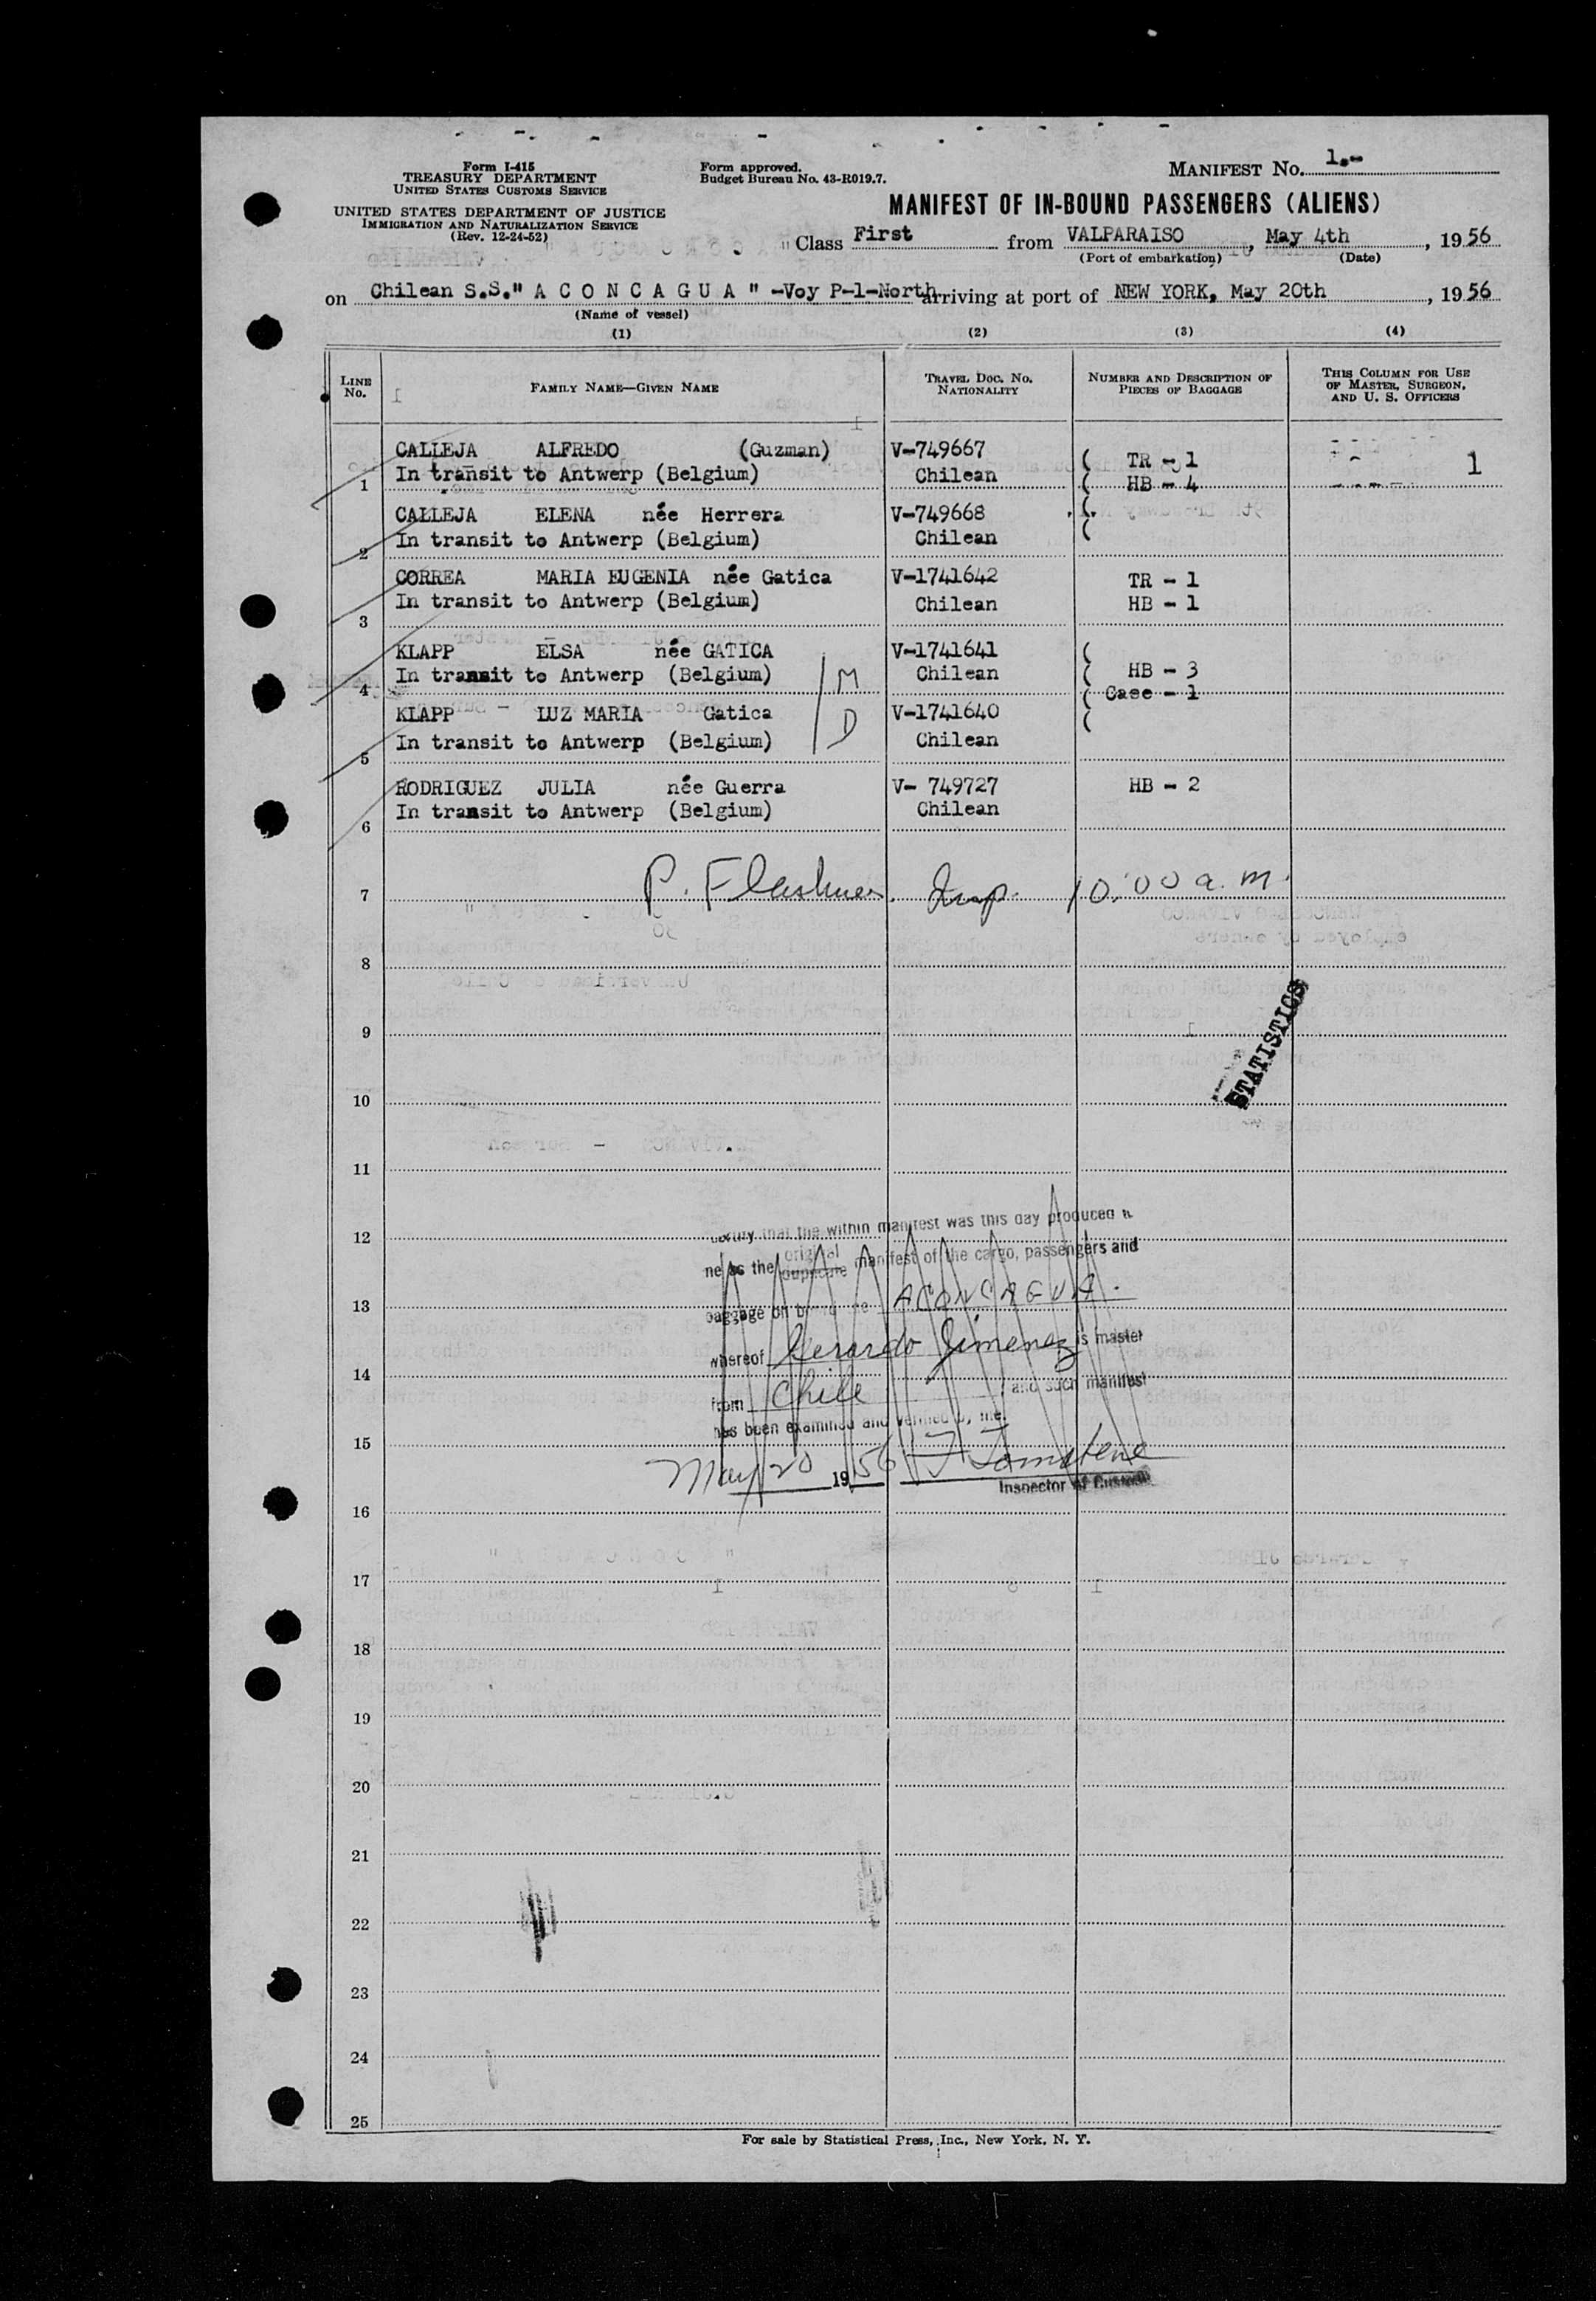 Form I-415
TREASURY DEPARTMENT
UNITED STATES CUSTOMS SERVICE
UNITED STATES DEPARTMENT OF JUSTICE
IMMIGRATION AND NATURALIZATION SERVICE
(Rev. 12-24-52)
Form approved.
Budget Bureau No. 43-R019.7.
MANIFEST No. 1.-
MANIFEST OF IN-BOUND PASSENGERS (ALIENS)
Class First from VALPARAISO, May 4th, 1956
(Port of embarkation) (Date)
on Chilean S.S." A C O N C A G U A " -Voy P-1-North arriving at port of NEW YORK, May 20th, 1956
(Name of vessel)
(1) (2) (3) (4)
LINE No. FAMILY NAME—GIVEN NAME TRAVEL DOC. NO. NATIONALITY NUMBER AND DESCRIPTION OF PIECES OF BAGGAGE THIS COLUMN FOR USE OF MASTER, SURGEON, AND U. S. OFFICERS
CALLEJA ALFREDO (Guzman) V-749667 ( TR - 1
1 In transit to Antwerp (Belgium) Chilean ( HB - 4 1
CALLEJA ELENA née Herrera V-749668 (
2 In transit to Antwerp (Belgium) Chilean (
CORREA MARIA EUGENIA née Gatica V-1741642 TR - 1
3 In transit to Antwerp (Belgium) Chilean HB - 1
KLAPP ELSA née GATICA V-1741641 (
4 In transit to Antwerp (Belgium) M Chilean ( HB - 3
( Case - 1
KLAPP LUZ MARIA Gatica V-1741640 (
5 In transit to Antwerp (Belgium) D Chilean
RODRIGUEZ JULIA née Guerra V- 749727 HB - 2
6 In transit to Antwerp (Belgium) Chilean
7 P. Insp. 10:00 a.m.
8
9
STATISTICS
10
11
12 that the within manifest was this day produced
me as the original duplicate manifest of the cargo, passengers and
13 baggage on board the ACONCAGUA.
whereof Gerardo Jimenez is master
14 from Chile, and such manifest
has been examined and verified by me.
15
May 20 1956
Inspector of Customs
16
17
18
19
20
21
22
23
24
25
For sale by Statistical Press, Inc., New York, N. Y.